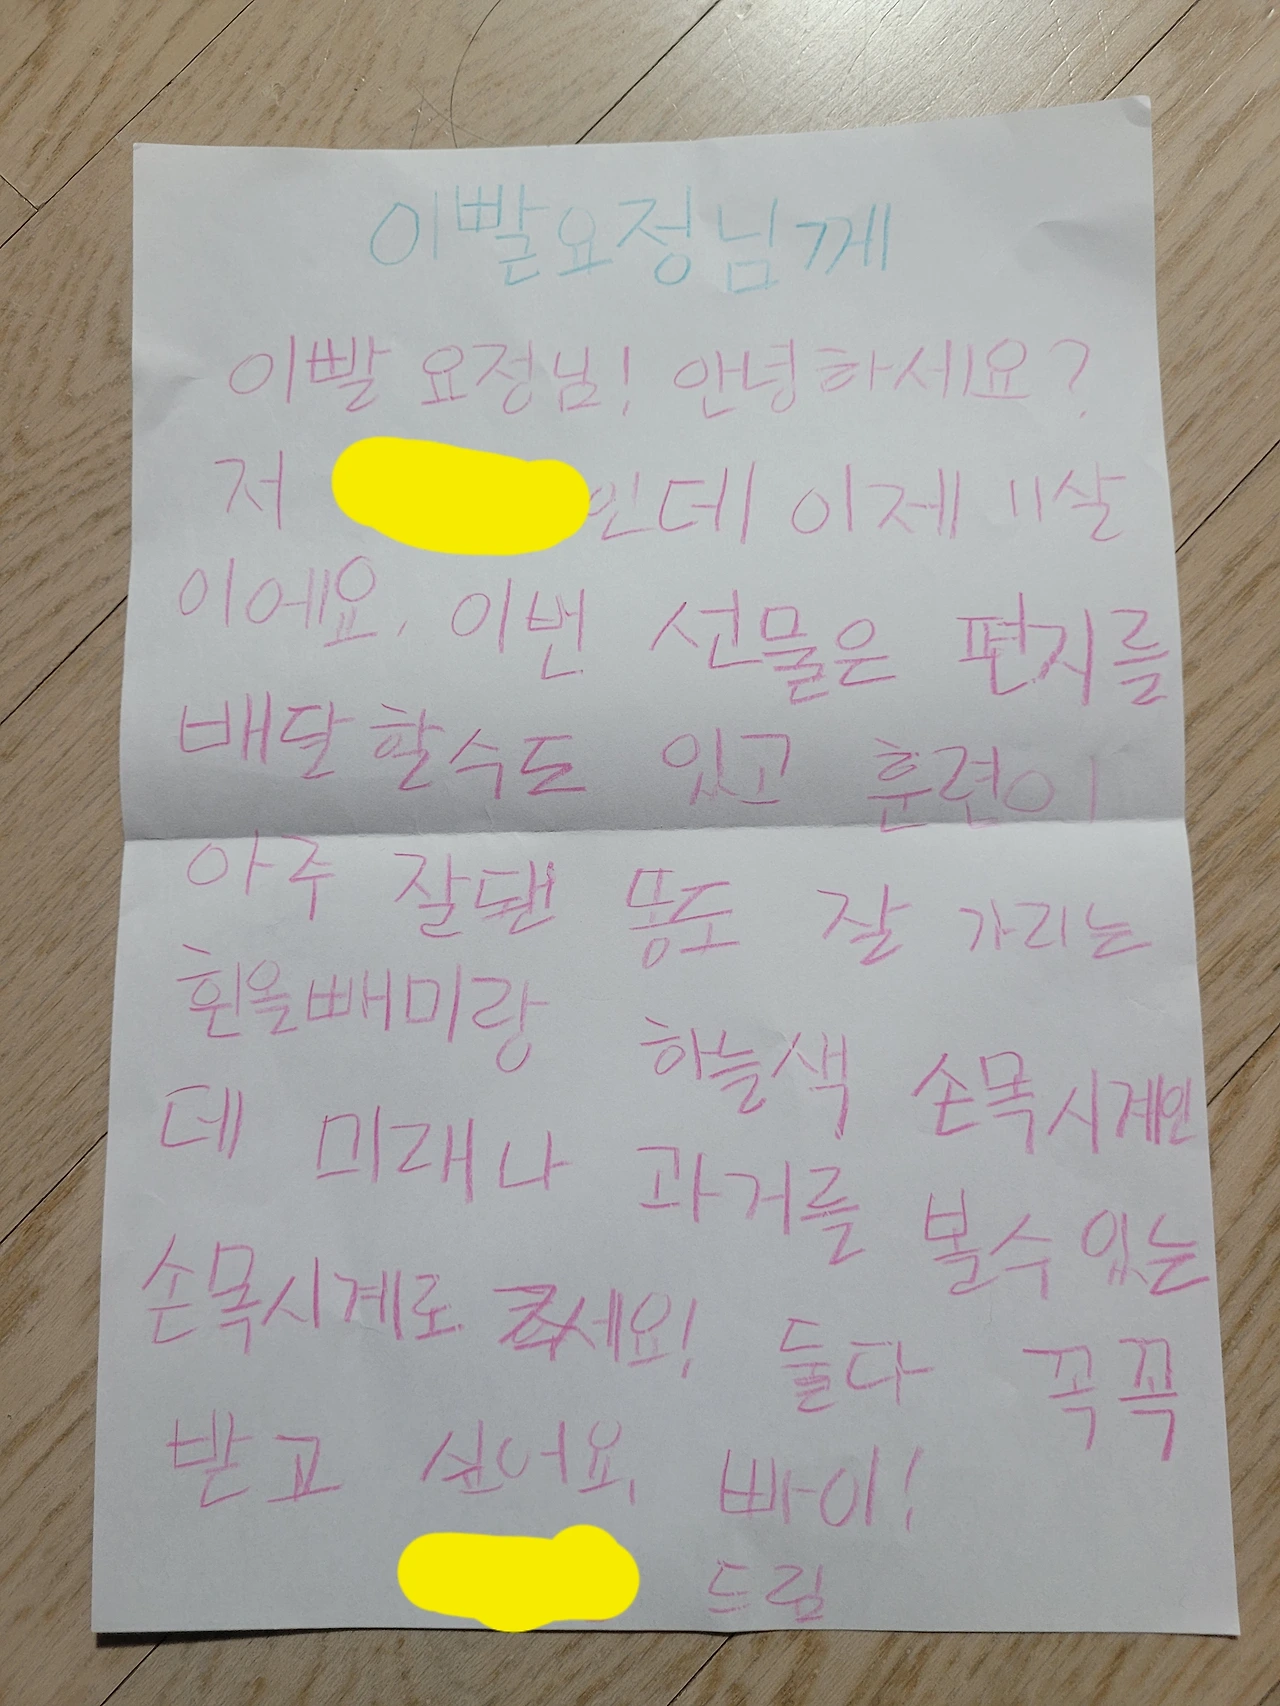 이빨요정님께
이빨 요정님! 안녕하세요?
저 인데 이제 11살
이에요. 이번 선물은 편지를
배달할수도 있고 훈련이
아주 잘됀 똥도 잘 가리는
흰올빼미랑 하늘색 손목시계인
데 미래나 과거를 볼수있는
손목시계로 주세요! 둘다 꼭꼭
받고 싶어요. 빠이!
드림